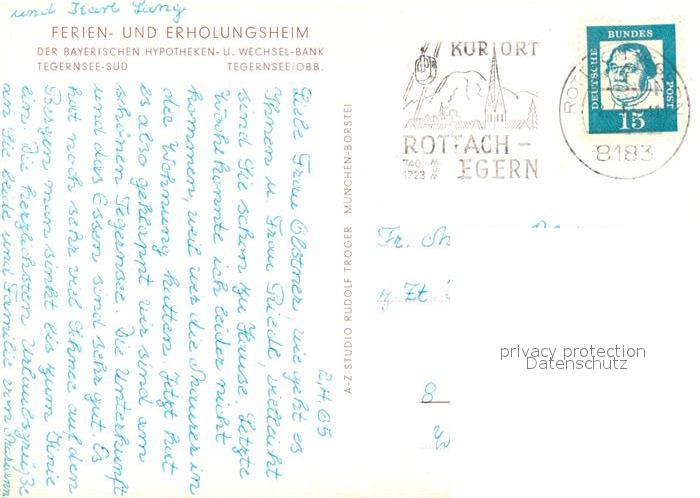 und Karl Lung
FERIEN- UND ERHOLUNGSHEIM
DER BAYERISCHEN HYPOTHEKEN- U. WECHSEL-BANK
TEGERNSEE-SÜD TEGERNSEE/OBB.
2.4.65
Liebe Frau Elstner, wie geht es
Ihnen u. Frau Riede, vielleicht
sind Sie schon zu Hause. Letzte
Woche konnte ich leider nicht
kommen, weil wir die Maurer in
der Wohnung hatten. Jetzt hat
es also geklappt wir sind am
schönen Tegernsee. Die Unterkunft
und das Essen sind sehr gut. Es
hat noch sehr viel Schnee auf den
Bergen man sinkt bis zum Knie
ein. Die herzlichsten Urlaubsgrüße
an Sie beide und Familie von
A-Z STUDIO RUDOLF TROGER MÜNCHEN-BORSTEI
KURORT
ROTTACH-
EGERN
740-
1723 m
DEUTSCHE
BUNDES
POST
15
8183
Fr.
z. Zt.
8
privacy protection
Datenschutz